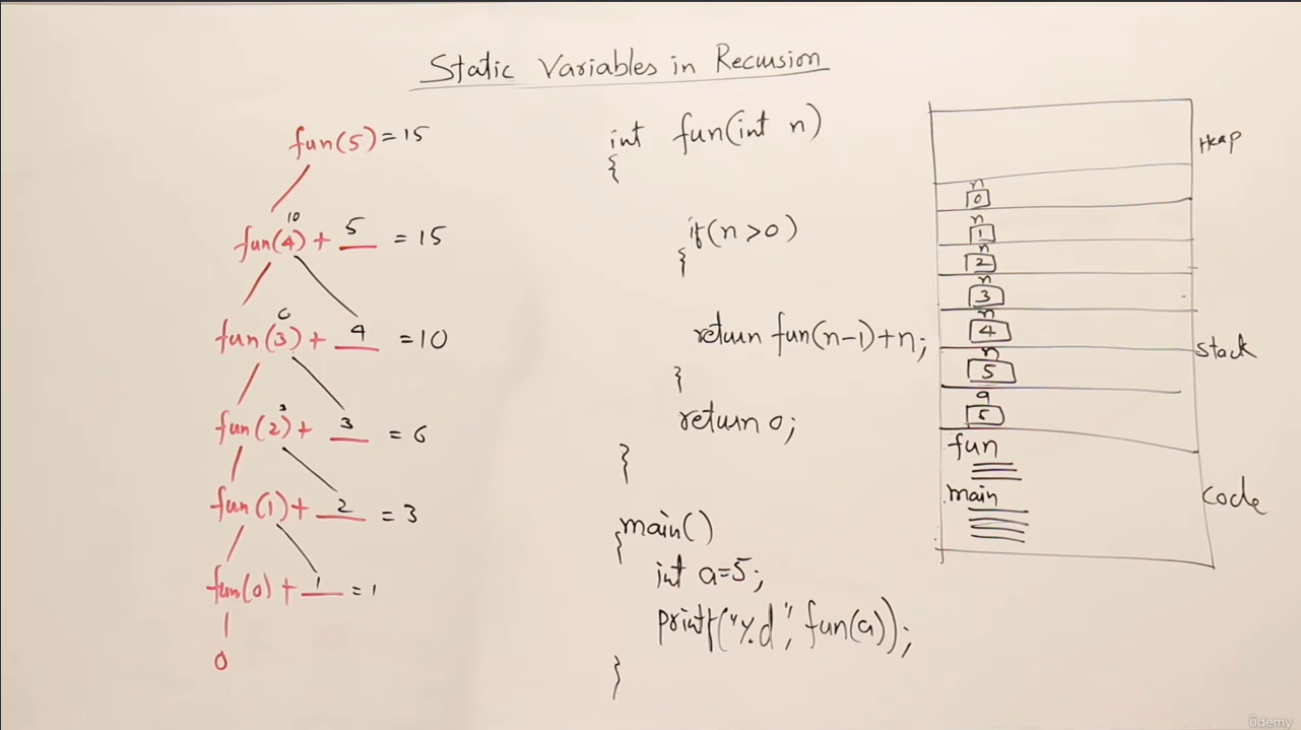 Static Variables in Recursion
fun(5) = 15
10
fun(4) + 5 = 15
6
fun(3) + 4 = 10
3
fun(2) + 3 = 6
fun(1) + 2 = 3
fun(0) + 1 = 1
0
int fun(int n)
{
if(n>0)
{
return fun(n-1)+n;
}
return 0;
}
main()
{
int a=5;
printf("%d", fun(a));
}
Heap
n
0
n
1
n
2
n
3
n
4
n
5
a
5
Stack
fun
main
Code
Udemy